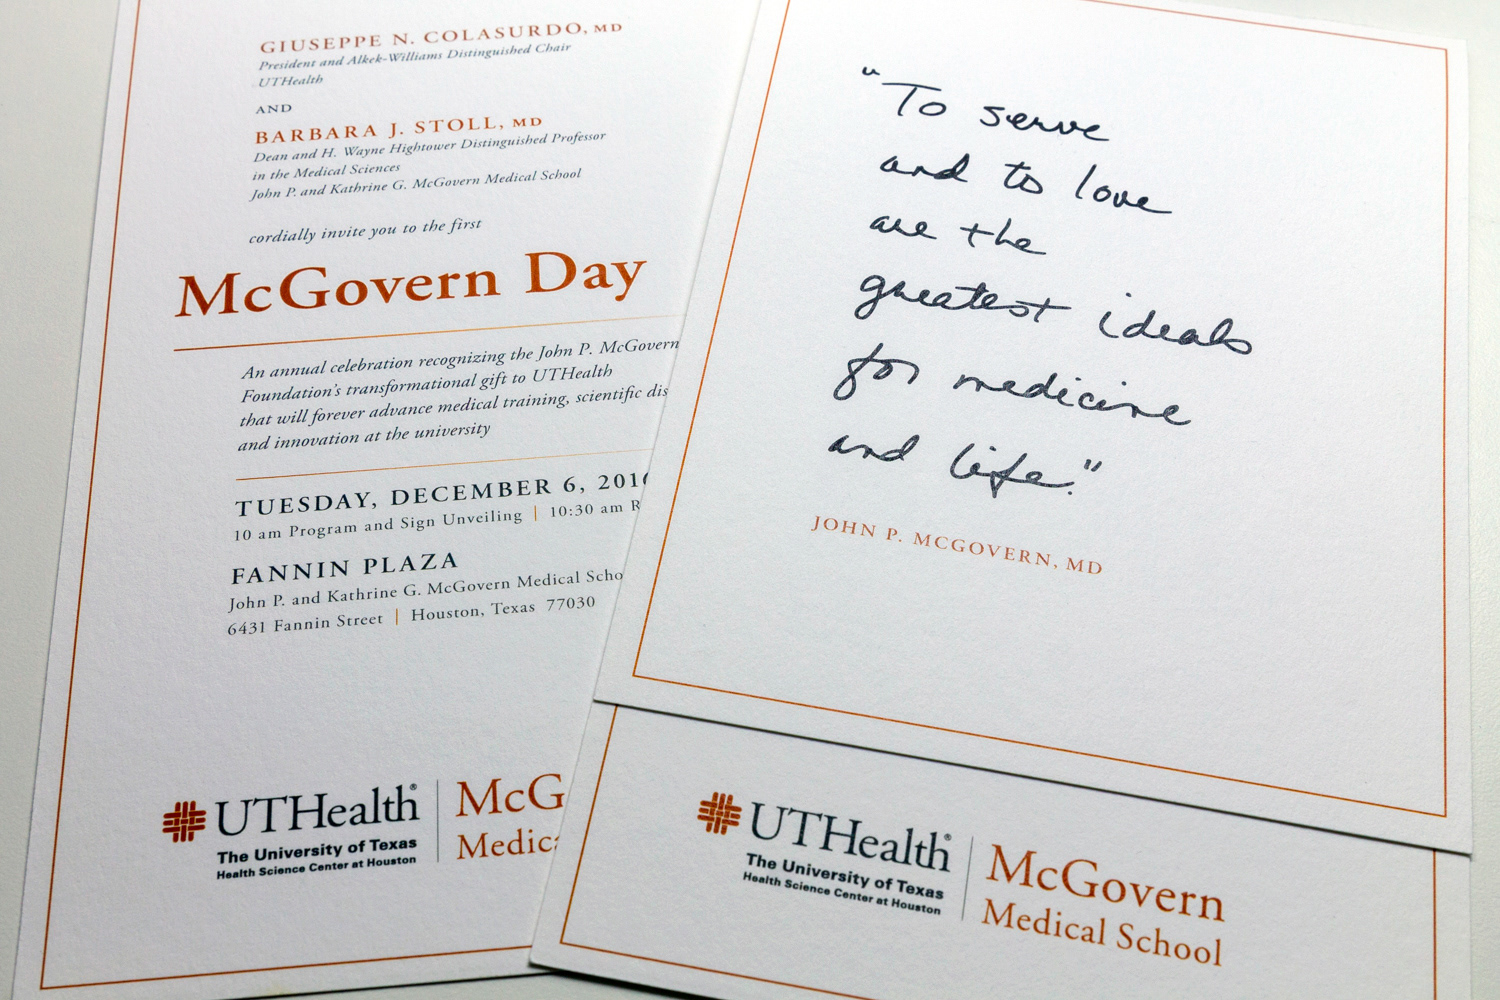 GIUSEPPE N. COLASURDO, MD
President and Alkek-Williams Distinguished Chair
UTHealth
AND
BARBARA J. STOLL, MD
Dean and H. Wayne Hightower Distinguished Professor
in the Medical Sciences
John P. and Kathrine G. McGovern Medical School
cordially invite you to the first
McGovern Day
An annual celebration recognizing the John P. McGovern
Foundation's transformational gift to UTHealth
that will forever advance medical training, scientific dis
and innovation at the university
TUESDAY, DECEMBER 6, 201
10 am Program and Sign Unveiling | 10:30 am R
FANNIN PLAZA
John P. and Kathrine G. McGovern Medical Scho
6431 Fannin Street | Houston, Texas 77030
UTHealth®
The University of Texas
Health Science Center at Houston
McG
Medic
"To serve
and to love
are the
greatest ideals
for medicine
and life."
JOHN P. MCGOVERN, MD
UTHealth®
The University of Texas
Health Science Center at Houston
McGovern
Medical School